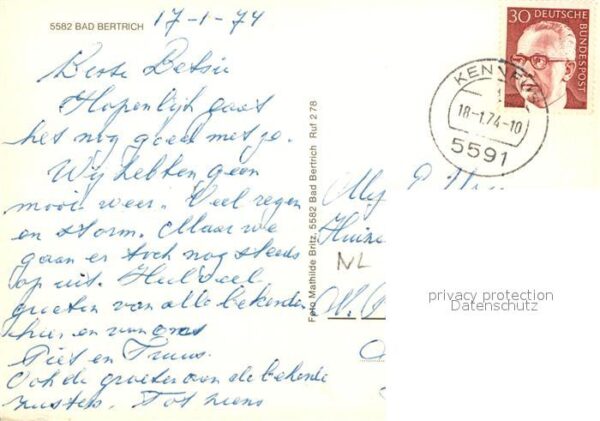 5582 BAD BERTRICH
17-1-74
Beste Betsie
Hopenlijk gaat
het nog goed met jo.
Wij hebben geen
mooi weer. Veel regen
en storm. Maar we
gaan er toch nog steeds
op uit. Heel veel
groeten van alle bekenden
hier en van ons
Piet en Truus.
Ook de groeten aan de bekende
zusters. Tot ziens
Foto Mathilde Britz, 5582 Bad Bertrich Ruf 2 78
30 DEUTSCHE BUNDESPOST
18-1.74-10
5591
Mej
NL
privacy protection
Datenschutz